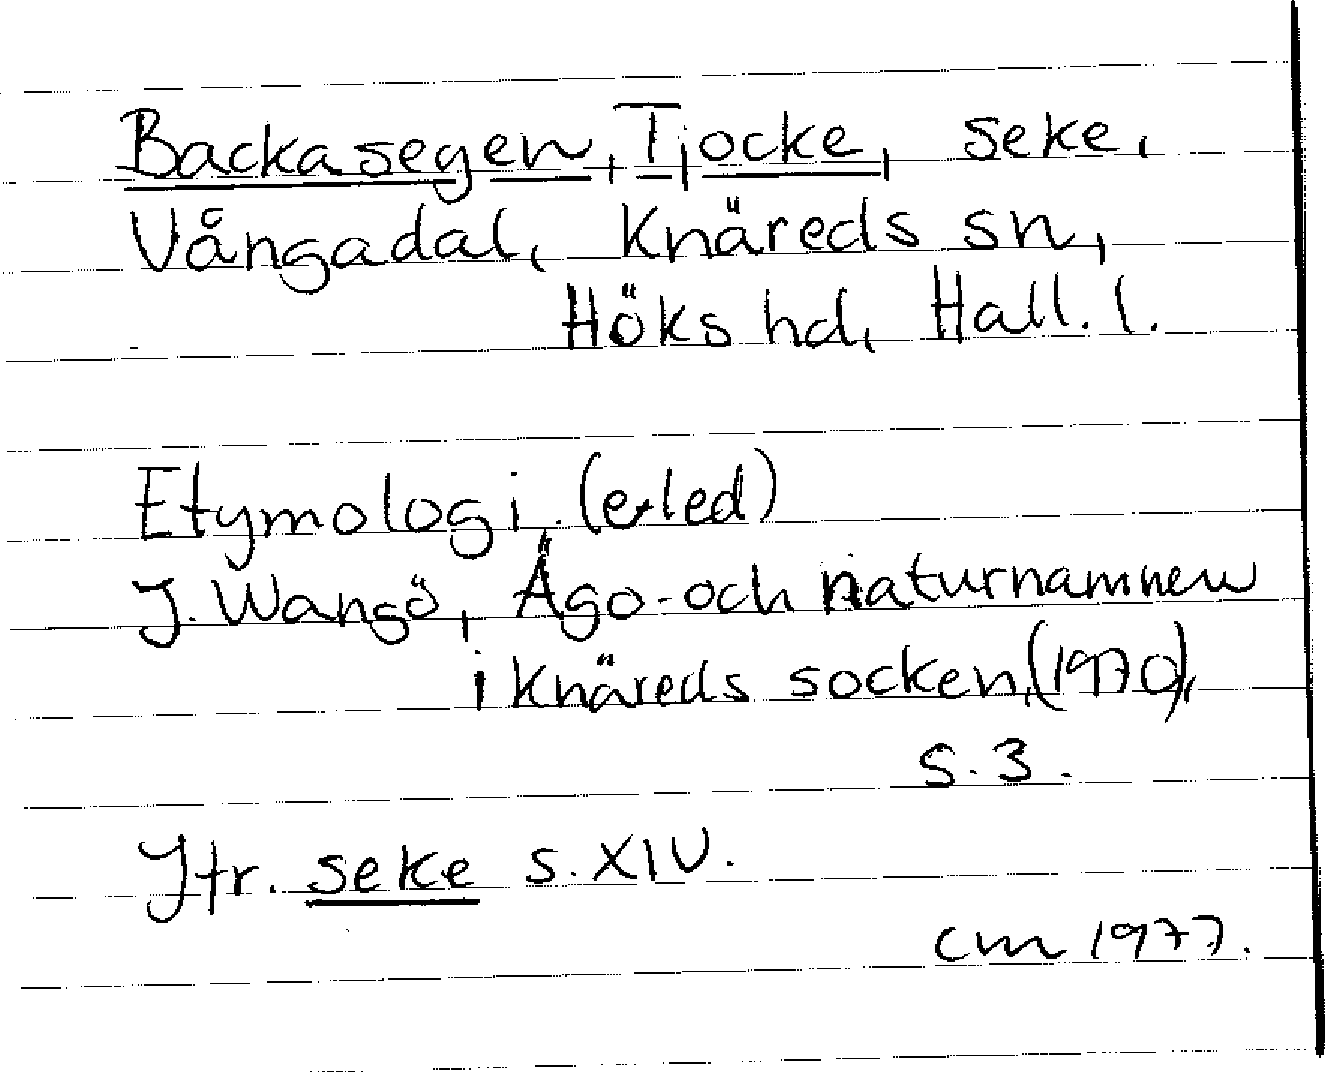 Backasegen, Tjocke, seke,
Vångadal, Knäreds sn,
Höks hd, Hall. l.
Etymologi. (e-led)
J. Wangö, Ägo- och naturnamnen
i Knäreds socken, (1970),
s. 3.
Jfr. seke s. XIV.
cm 1977.